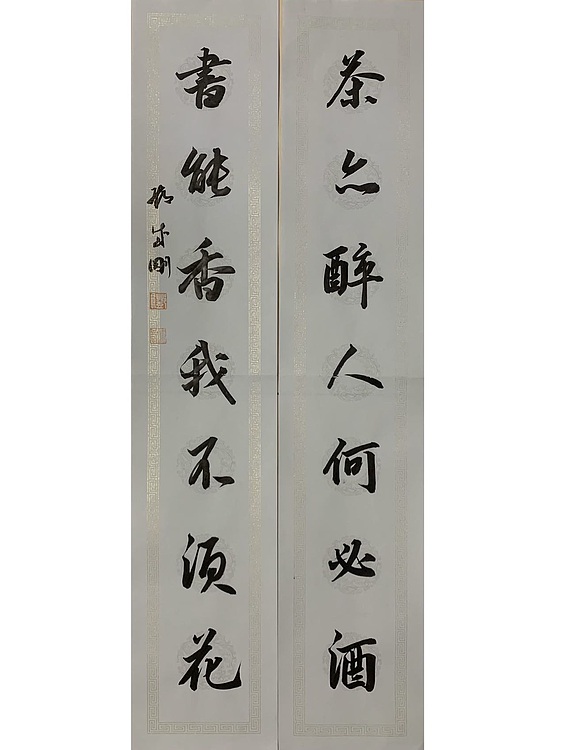 茶亦醉人何必酒
書能香我不須花
成剛